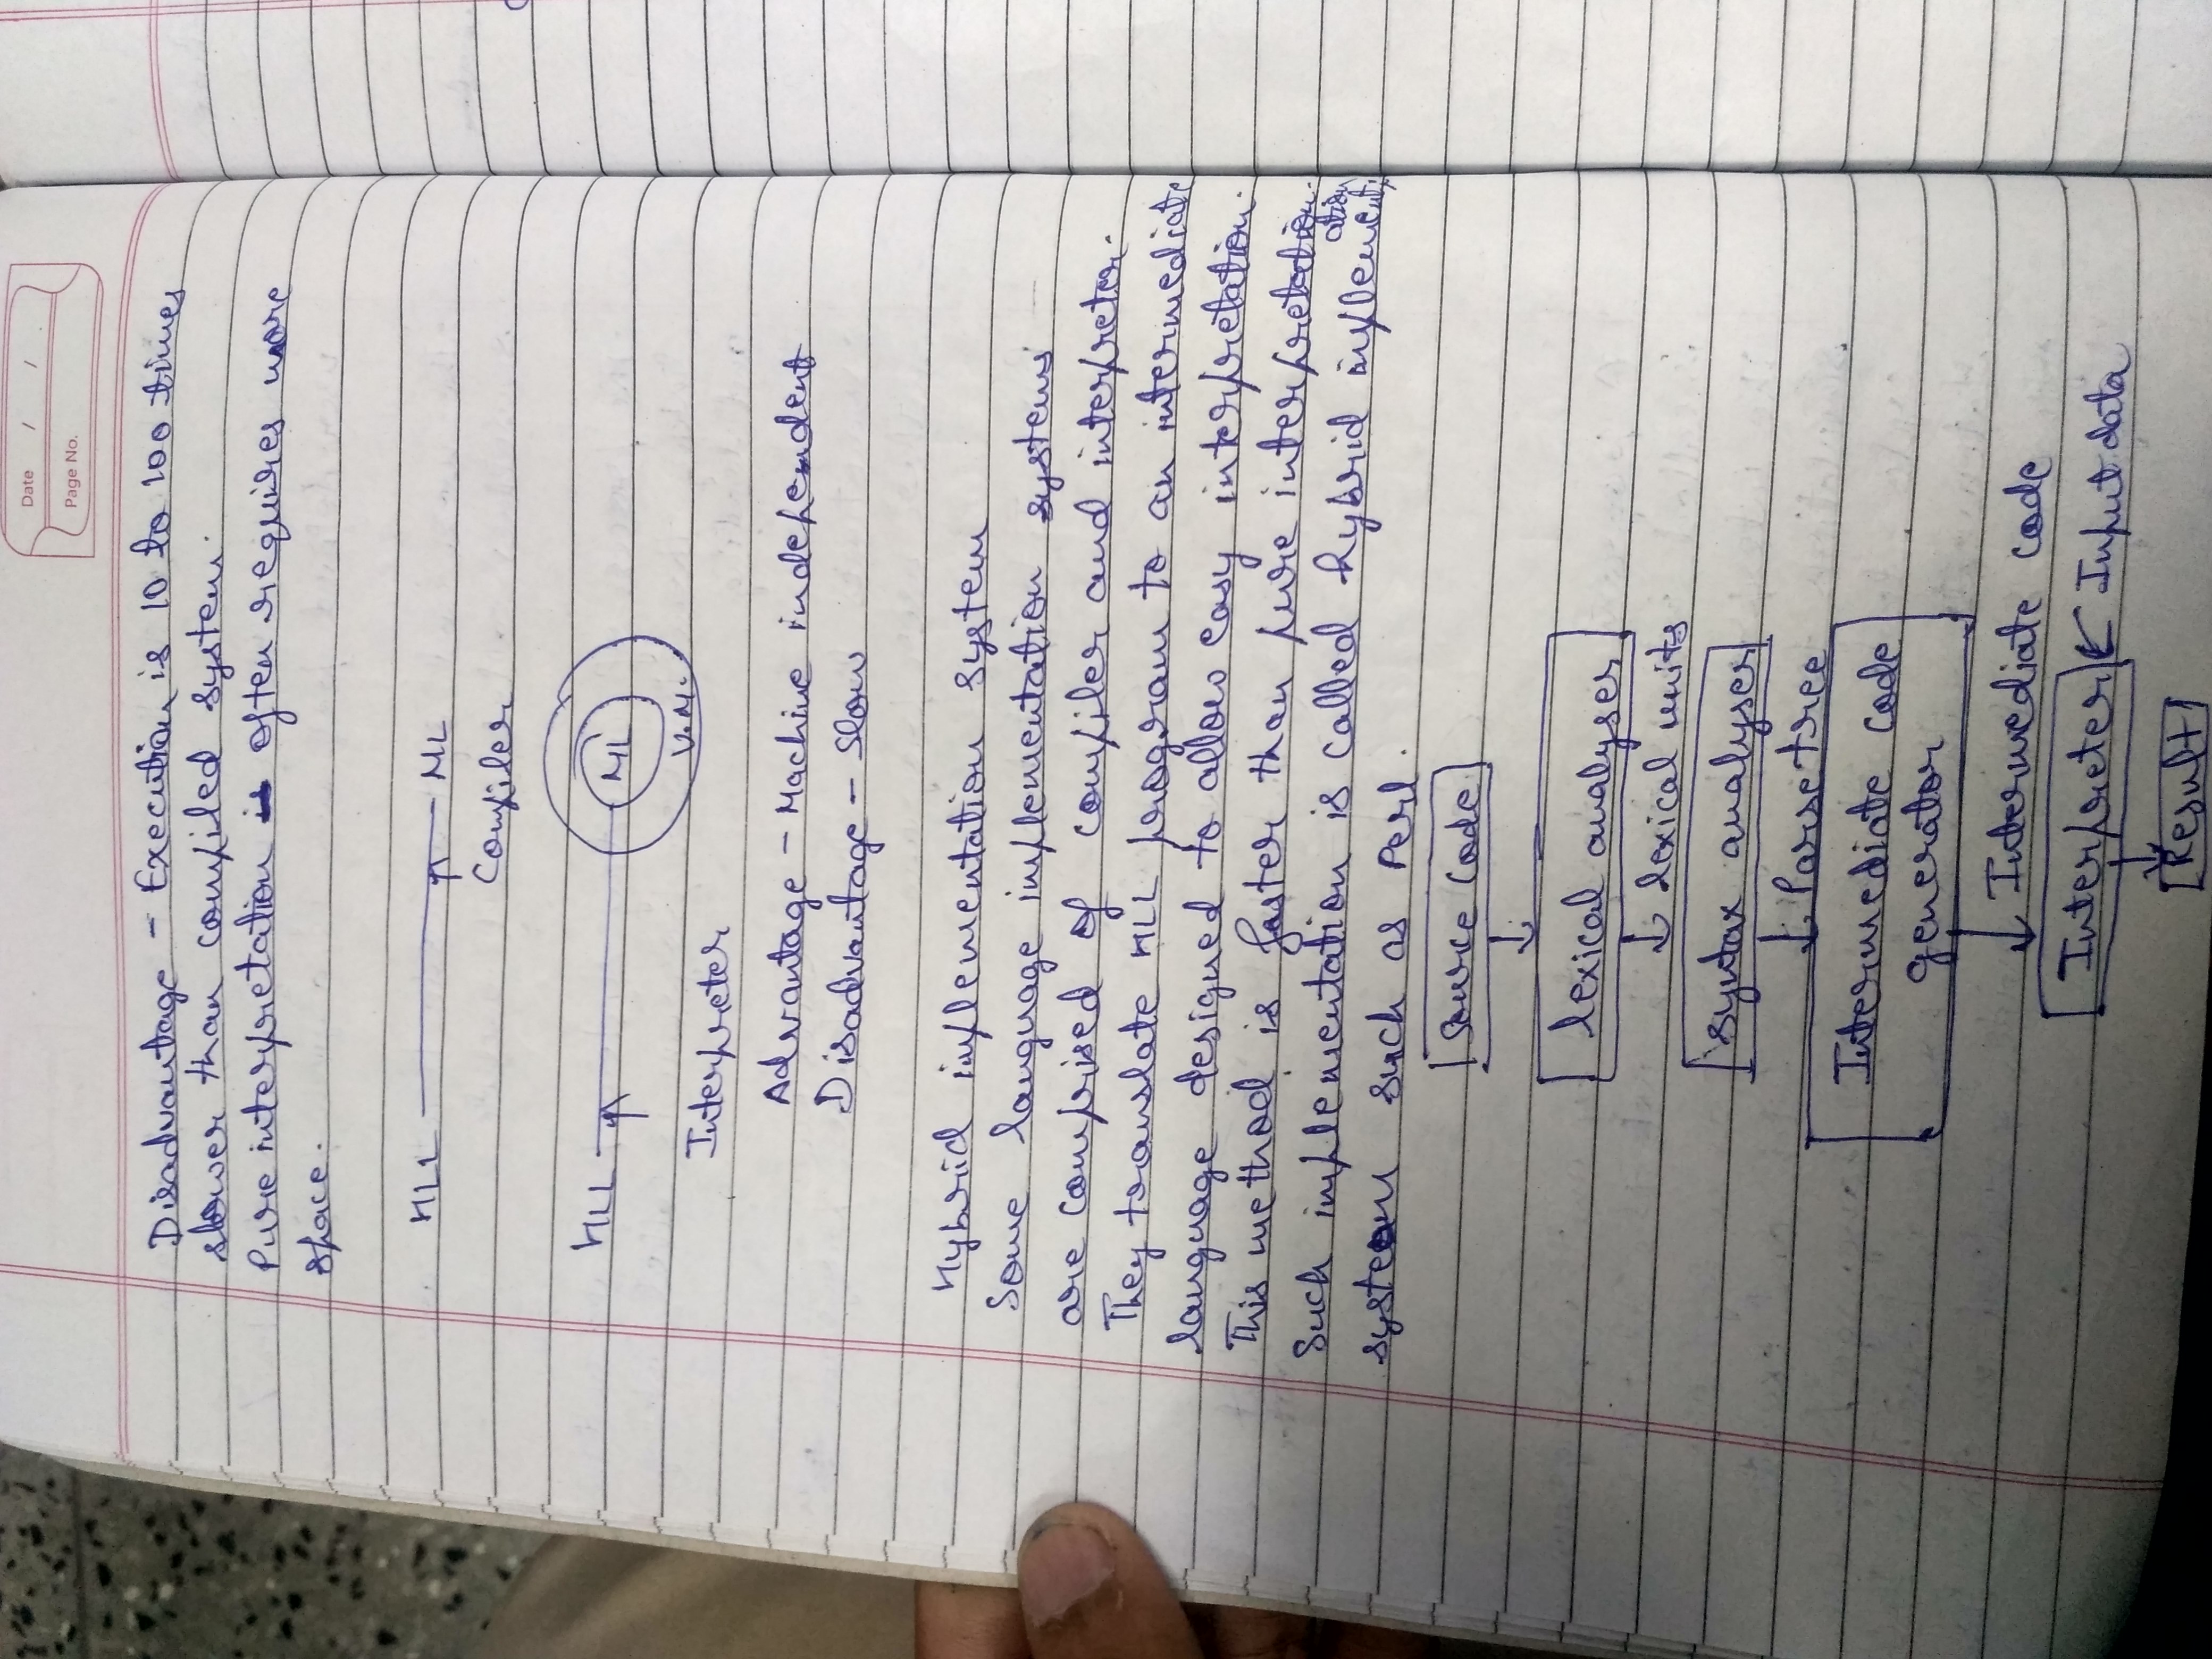 Date / /
Page No.
Disadvantage - Execution is 10 to 100 times
slower than compiled system.
Pure interpretation often requires more
space.
HLL → ML
Compiler
HLL → ML
V.M.
Interpreter
Advantage - Machine independent
Disadvantage - Slow
Hybrid implementation system
Some language implementation systems
are comprised of compiler and interpreter.
They translate HLL program to an intermediate
language designed to allow easy interpretation.
This method is faster than pure interpretation.
Such implementation is called hybrid implementation
system such as Perl.
Source Code
↓
lexical analyser
↓ lexical units
Syntax analyser
↓ Parse tree
Intermediate code
generator
↓ Intermediate code
Interpreter ← Input data
↓
Result